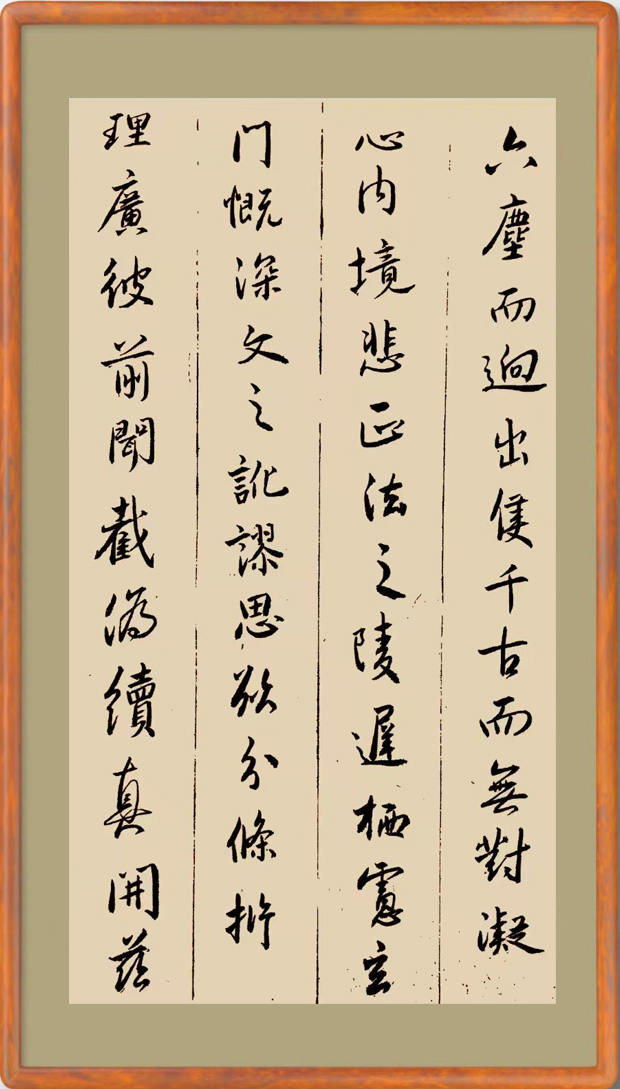 六塵而迥出隻千古而無對凝
心內境悲正法之陵遲栖慮玄
門慨深文之訛謬思欲分條析
理廣彼前聞截偽續真開茲